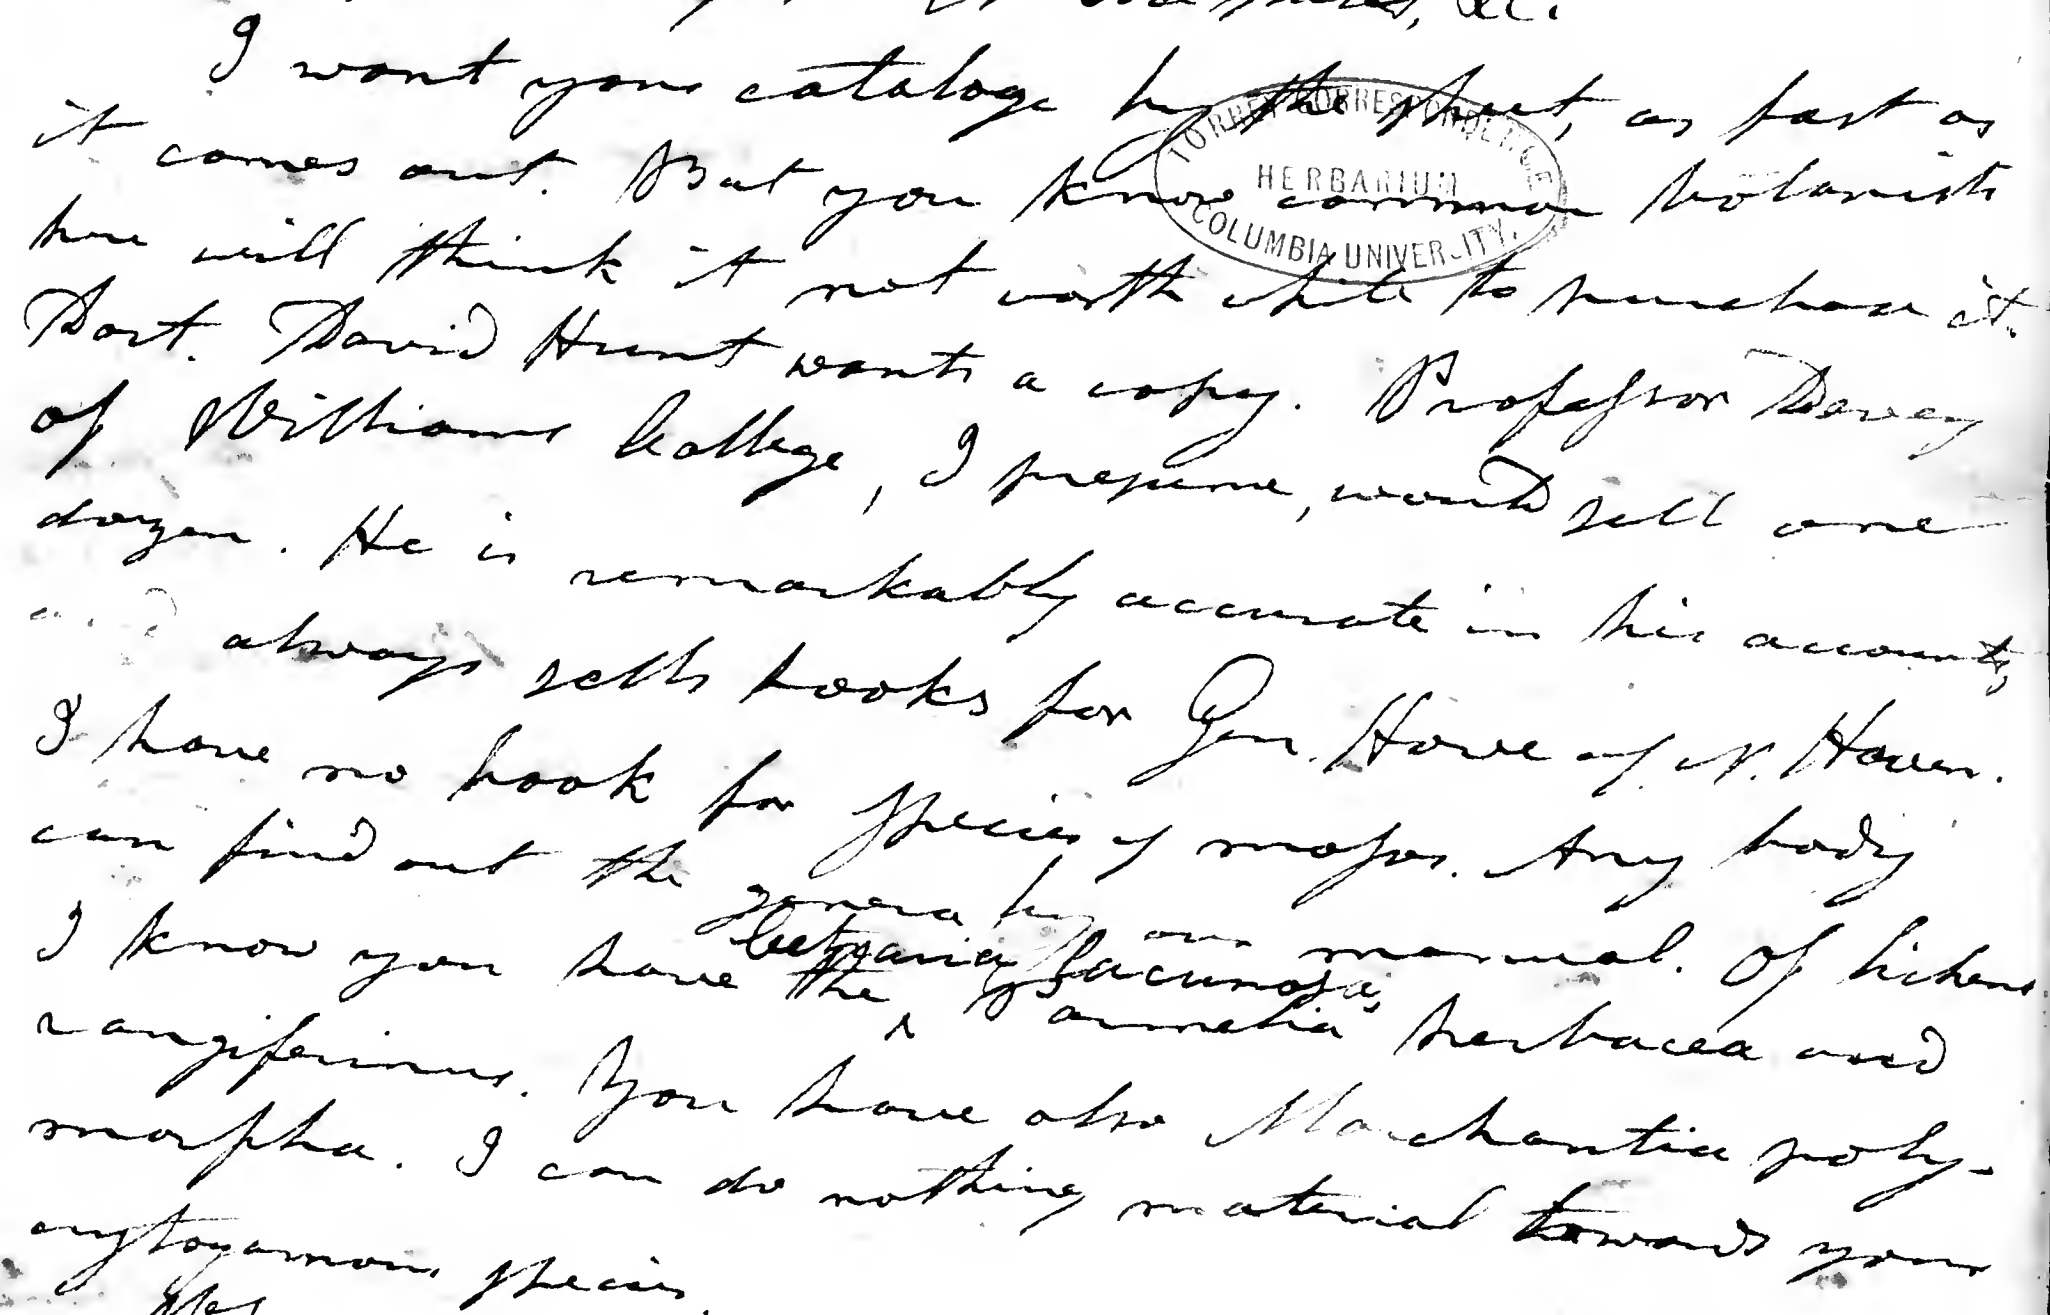 &c.
I want your cataloge by the sheet, as fast as
it comes out. But you know common botanists
here will think it not worth while to purchase it.
Doct. David Hunt wants a copy. Professor Dewey
of Williams College, I presume, would sell one
dozen. He is remarkably accurate in his accounts,
and always sells books for Gen. Howe of N. Haven.
I have no book for species of mosses. Any body
can find out the genera by our manual. Of lichens
cetraria lacunosa,
I know you have the ^ Parmelia herbacea and
rangiferinus. You have also Marchantia poly-
morpha. I can do nothing material towards your
cryptogamous species.
TORREY CORRESPONDENCE
HERBARIUM
COLUMBIA UNIVERSITY.